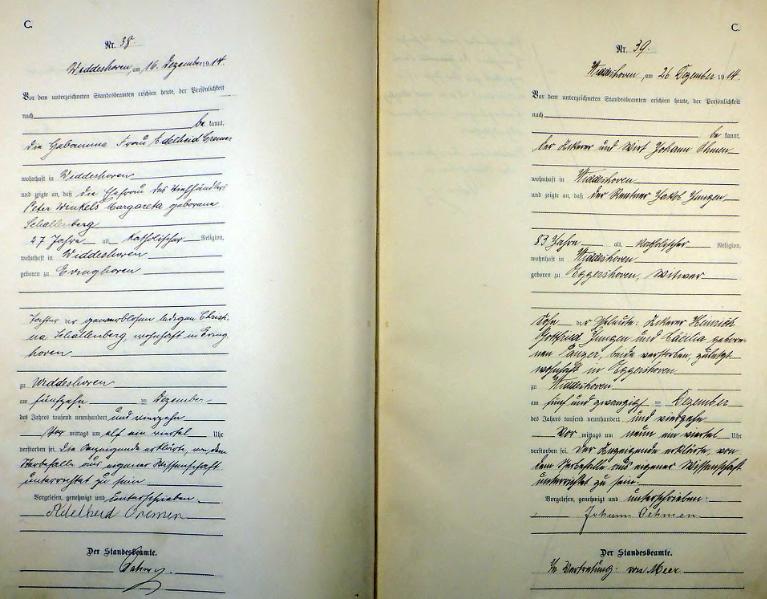 C.
Nr. 38.
Widdeshoven, am 16. Dezember 1914.
Vor dem unterzeichneten Standesbeamten erschien heute, der Persönlichkeit
nach
be kannt,
die Hebamme Frau Adelheid Cremer
wohnhaft in Widdeshoven
und zeigte an, daß die Ehefrau des
Peter Winkels Margareta geborene
Schallenberg
27 Jahre alt, katholischer Religion,
wohnhaft in Widdeshoven
geboren zu Evinghoven
Tochter der gewerblosen ledigen Christi
na Schallenberg wohnhaft in Eving
hoven
zu Widdeshoven
am fünfzehn ten Dezember
des Jahres tausend neunhundert und vierzehn
Vor mittags um elf ein viertel Uhr
verstorben sei. Die Anzeigende erklärte, von dem
Sterbefalle aus eigener Wissenschaft
unterrichtet zu sein.
Vorgelesen, genehmigt und unterschrieben
Adelheid Cremer
Der Standesbeamte.
C.
Nr. 39.
Widdeshoven, am 26 Dezember 1914.
Vor dem unterzeichneten Standesbeamten erschien heute, der Persönlichkeit
nach
be kannt,
der Ackerer und Wirt Johann Oehmen
wohnhaft in Widdeshoven
und zeigte an, daß der Rentner Jakob Jungen
83 Jahre alt, katholischer Religion,
wohnhaft in Widdeshoven
geboren zu Eggershoven, Witwer
Sohn der Eheleute: Ackerer Heinrich
Gottfried Jungen und Cäcilia gebore
nen beide verstorben, zuletzt
wohnhaft in Eggershoven
zu Widdeshoven
am fünf und zwanzigsten Dezember
des Jahres tausend neunhundert und vierzehn
Vor mittags um neun ein viertel Uhr
verstorben sei. Der Anzeigende erklärte, von
dem Sterbefalle aus eigener Wissenschaft
unterrichtet zu sein.
Vorgelesen, genehmigt und unterschrieben
Johann Oehmen
Der Standesbeamte.
In Vertretung: von Meer